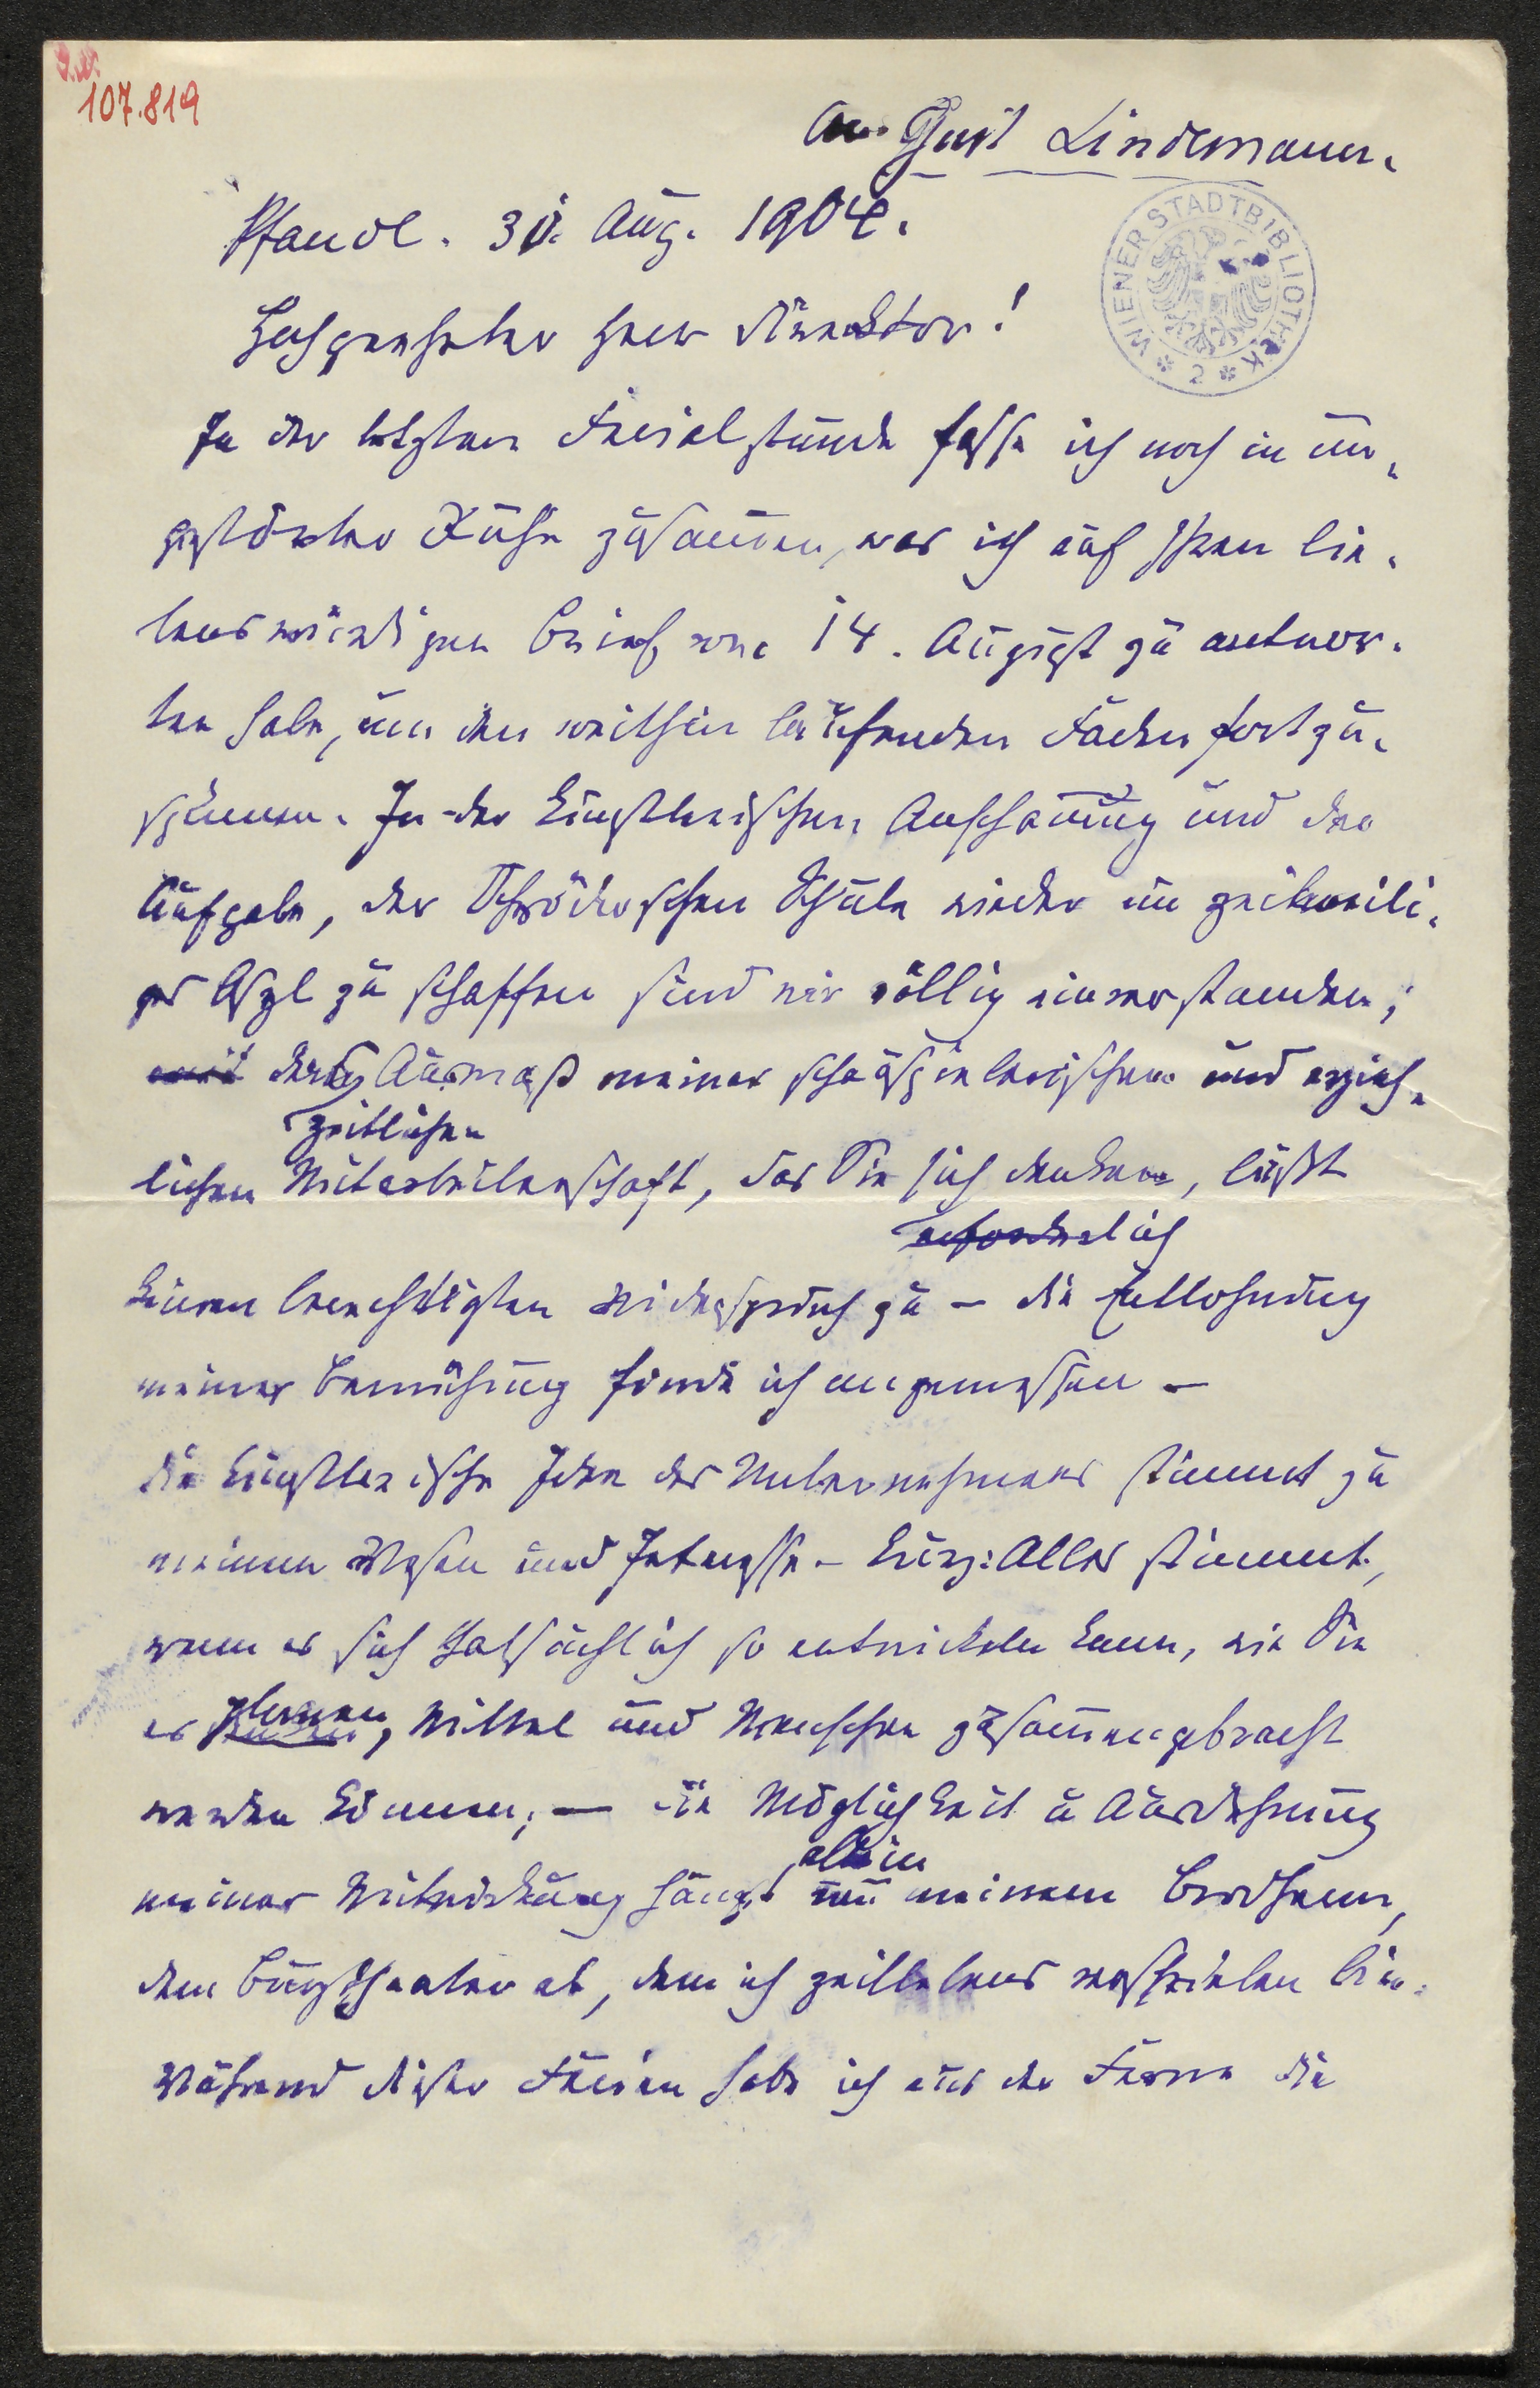 I.N.
107.819
An Gust Lindemann.
Pfandl. 31. Aug. 1904.
WIENER STADTBIBLIOTHEK
* 2 *
Hochgeehrter Herr Direktor!
In der letzten Ferialstunde fasse ich noch in un-
gestörter Ruhe zusammen, was ich auf Ihren lie-
benswürdigen Brief vom 14. August zu antwor-
ten habe, um den weithin laufenden Faden fortzu-
spinnen. In der künstlerischen Anschauung und der
Aufgabe, der Schröderschen Schule wieder ein zeitweili-
ges Asyl zu schaffen sind wir völlig einverstanden;
mit Ausmaß meiner schauspielerischen und erzieh-
zeitlichen
lichen Mitarbeiterschaft, das Sie sich denken, läßt
erforderlich
keinen berechtigten Widerspruch zu – die Entlohnung
meiner Bemühung finde ich angemessen –
die künstlerische Idee des Unternehmens stimmt zu
meinem Wesen und Interesse – kurz: Alles stimmt,
wenn es sich thatsächlich so entwickeln kann, wie Sie
es planen, Mittel und Menschen zusammengebracht
werden können; – die Möglichkeit u Ausdehnung
allein
meiner Mitwirkung hängt von meinem Brodherrn,
dem Burgtheater ab, dem ich zeitlebens verschrieben bin.
Während dieser Ferien habe ich aus der Ferne die